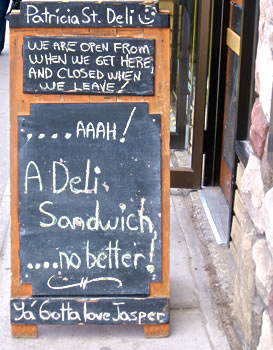 Patricia St. Deli
WE ARE OPEN FROM
WHEN WE GET HERE,
AND CLOSED WHEN
WE LEAVE!
,....AAAH!
A Deli
Sandwich,
....no better!
Ya Gotta love Jasper